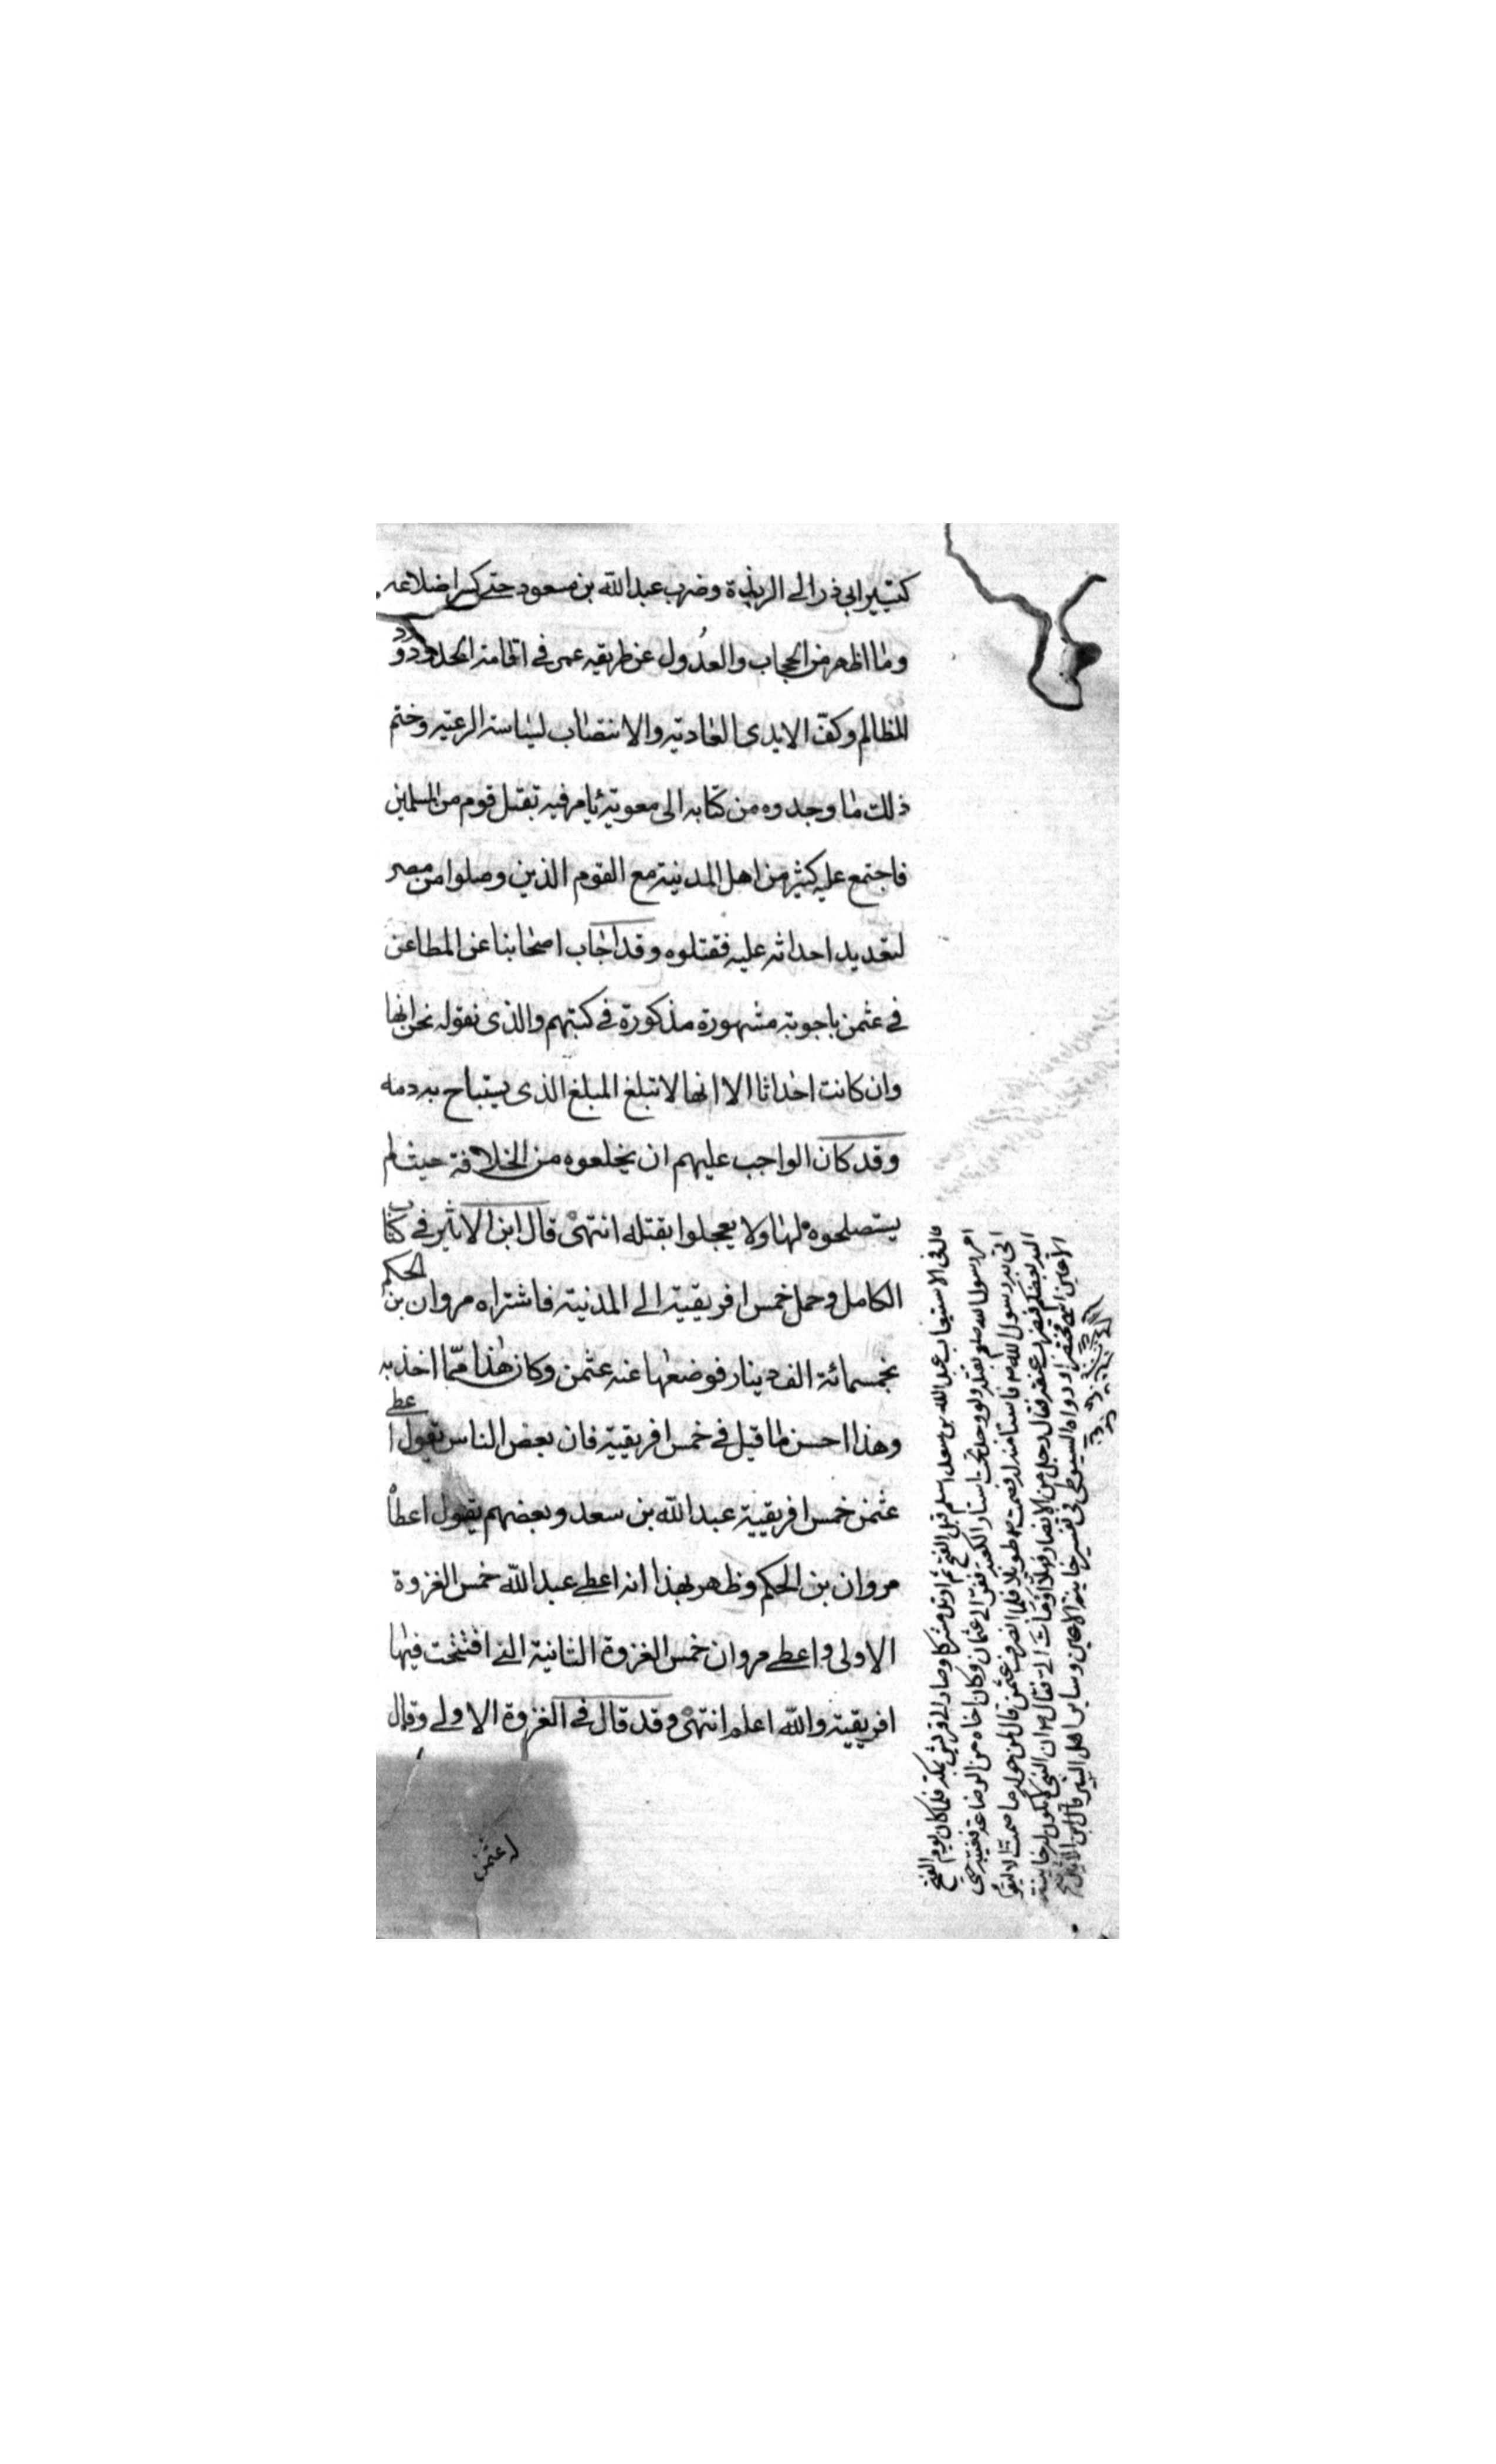 كتسيير ابى ذر الى الربذة وضرب عبد الله بن مسعود حتى كسر اضلاعه
وما اظهر من الحجاب والعدول عن طريقه عمر فى اقامة الحدود ورد
المظالم وكفّ الايدى العادية والانتصاب لسياسة الرعية وختم
ذلك ما وجدوه من كتابه الى معوية يامر فيه بقتل قوم من المسلمين
فاجتمع عليه كثير من اهل المدينة مع القوم الذين وصلوا من مصر
لتعديد احداثه عليه فقتلوه وقد اجاب اصحابنا عن المطاعن
فى عثمن باجوبة مشهورة مذكورة فى كتبهم والذى نقوله نحن انها
وان كانت احداثا الا انها لا تبلغ المبلغ الذى يستباح به دمه
وقد كان الواجب عليهم ان يخلعوه من الخلافة حيث لم
يستصلحوه لها ولا يعجلوا بقتله انتهى قال ابن الاثير فى كتاب
الكامل وحمل خمس افريقية الى المدينة فاشتراه مروان بن الحكم
بخمسمائة الف دينار فوضعها عنه عثمن وكان هذا ممّا اخذ به
وهذا احسن ما قيل فى خمس افريقية فان بعض الناس يقول اعطى
عثمن خمس افريقية عبد الله بن سعد وبعضهم يقول اعطاه
مروان بن الحكم وظهر بهذا انه اعطى عبد الله خمس الغزوة
الاولى واعطى مروان خمس الغزوة الثانية التى افتتحت فيها
افريقية والله اعلم انتهى وقد قال فى الغزوة الاولى وقال
له عثمن
قال فى الاستيعاب عبد الله بن سعد اسلم قبل الفتح ثم ارتد مشركا وصار الى قريش بمكة فلما كان يوم الفتح
امر رسول الله صلعم بقتله ولو وجد تحت استار الكعبة ففر الى عثمان وكان اخاه من الرضاعة فغيبه حتى
اتى به رسول الله ص فاستامنه له فصمت ص طويلا فلما انصرف عثمن قال لمن حوله ما صمتّ الا ليقوم
اليه بعضكم فيضرب عنقه فقال رجل من الانصار فهلا اومات الىّ فقال ص ان النبى لا يكون له خاينة
الاعين انتهى